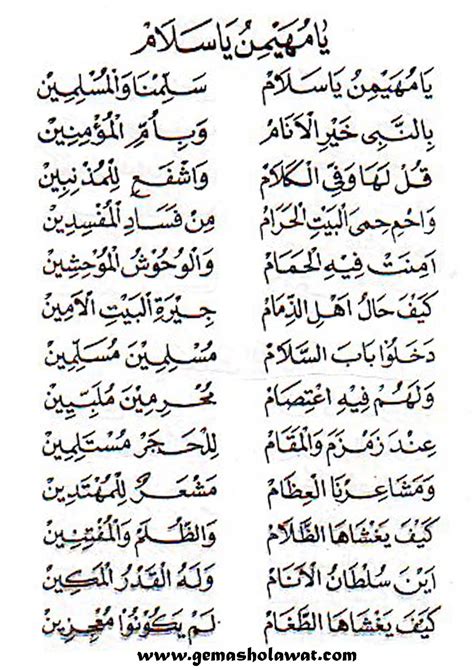 يَا مُهَيْمِنُ يَا سَلَامْ
يَا مُهَيْمِنُ يَا سَلَامْ سَلِّمْنَا وَالْمُسْلِمِيْنَ
بِالنَّبِى خَيْرِ الْاَنَامْ وَبِأُمِّ الْمُؤْمِنِيْنَ
قُلْ لَهَا وَفِّى الْكَلَامْ وَاشْفَعِ لِلْمُذْنِبِيْنَ
وَاحْمِ حِمَى الْبَيْتِ الْحَرَامْ مِنْ فَسَادِ الْمُفْسِدِيْنَ
اَمِنَتْ فِيْهِ الْحَمَامْ وَالْوُحُوْشُ الْمُوْحِشِيْنَ
كَيْفَ حَالُ اَهْلِ الذِّمَامْ جِيْرَةِ الْبَيْتِ الْاَمِيْنَ
دَخَلُوْا بَابَ السَّلَامْ مُسْلِمِيْنَ مُسَلِّمِيْنَ
وَلَهُمْ فِيْهِ اعْتِصَامْ مُحْرِمِيْنَ مُلَبِّيِيْنَ
عِنْدَ زَمْزَمَ وَالْمَقَامْ لِلْحَجَرْ مُسْتَلِمِيْنَ
وَمَشَاعِرْنَا الْعِظَامْ مَشْعَرٌ لِلْمُهْتَدِيْنَ
كَيْفَ يَغْشَاهَا الظَّلَامْ وَالظُّلَمْ وَالْمُفْتِنِيْنَ
اَيْنَ سُلْطَانُ الْاَنَامْ وَلَهُ الْقَدْرُ الْمَكِيْنَ
كَيْفَ يَغْشَاهَا الطَّغَامْ لَمْ يَكُوْنُوْا مُعْجِزِيْنَ
www.gemasholawat.com